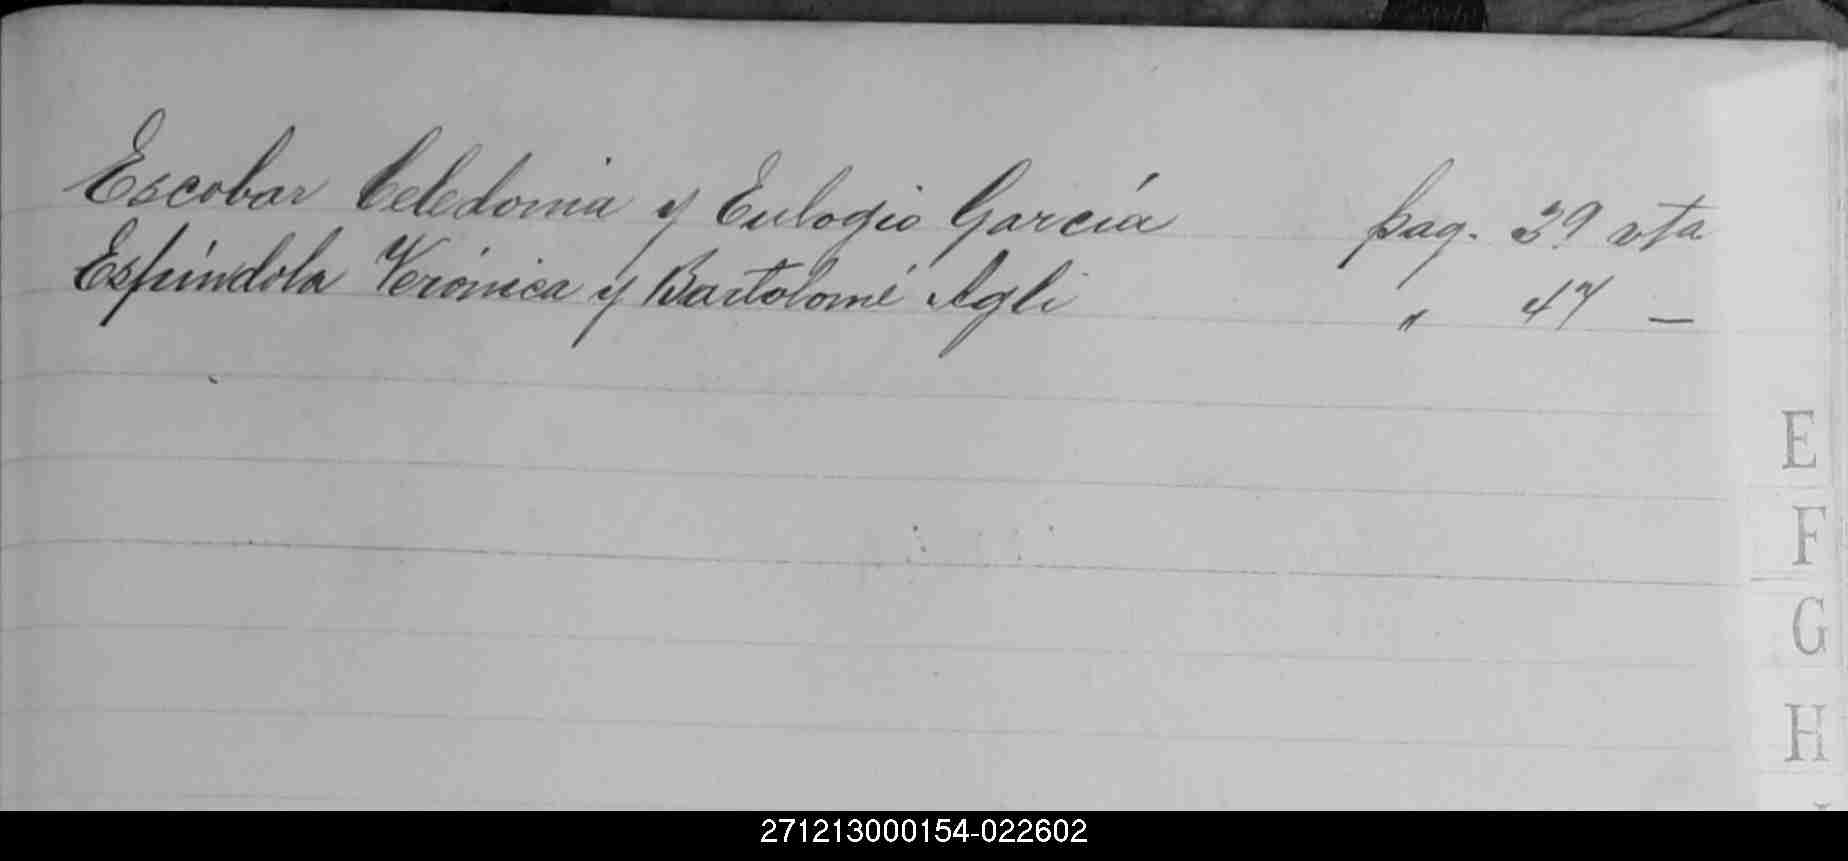 Escobar Celedonia y Eulogio García pag. 39 vta
Espíndola Verónica y Bartolomé Agli " 47 —
E
F
G
H
271213000154-022602